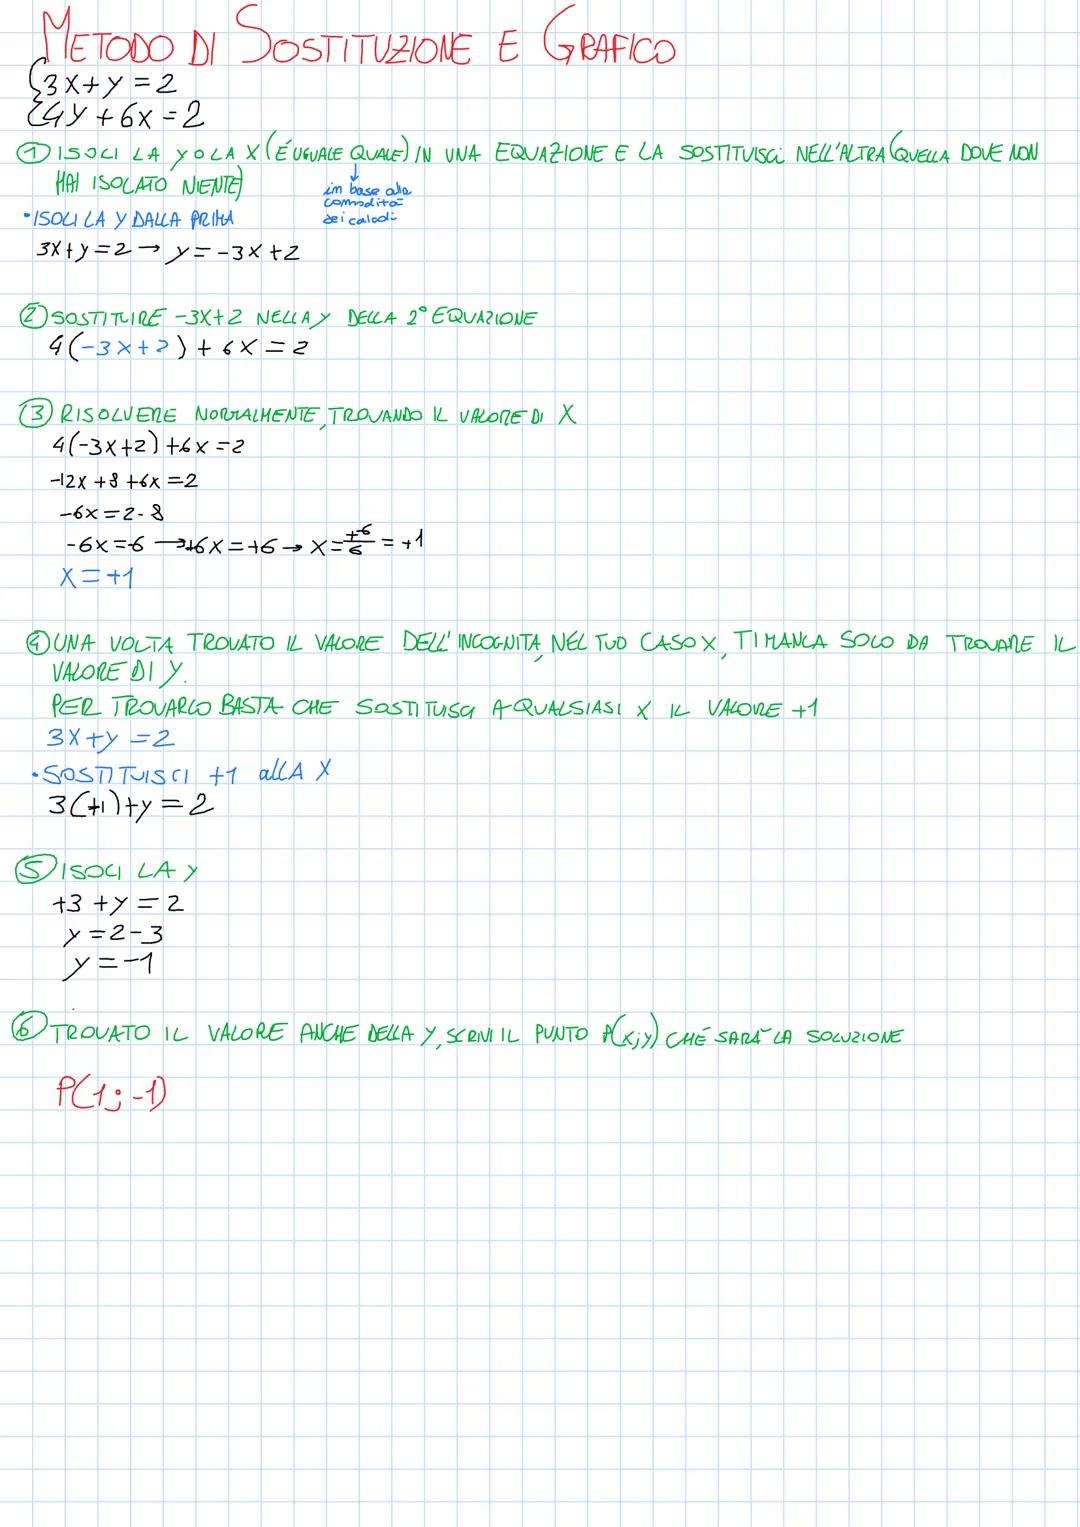 METODO DI SOSTITUZIONE E GRAFICO
3x+y=2
4y+6x=2
① ISOLI LA Y O LA X (É UGUALE QUALE) IN UNA EQUAZIONE E LA SOSTITUISCI NELL'ALTRA (QUELLA DOVE NON
HAI ISOLATO NIENTE)
in base alla
comodità
dei calcoli
•ISOLI LA Y DALLA PRIMA
3x+y=2→ y=-3x+2
② SOSTITUIRE -3X+2 NELLA Y DELLA 2° EQUAZIONE
4(-3x+2)+6x=2
③ RISOLVERE NORMALMENTE, TROVANDO IL VALORE DI X
4(-3x+2)+6x=2
-12x+8+6x=2
-6x=2-8
-6x=-6 →+6x=+6→ x=+6/6=+1
x=+1
④ UNA VOLTA TROVATO IL VALORE DELL'INCOGNITA, NEL TUO CASO X, TI MANCA SOLO DA TROVARE IL
VALORE DI Y.
PER TROVARLO BASTA CHE SOSTITUISCI A QUALSIASI X IL VALORE +1
3x+y=2
•SOSTITUISCI +1 allA X
3(+1)+y=2
⑤ ISOLI LA Y
+3+y=2
y=2-3
y=-1
⑥ TROVATO IL VALORE ANCHE DELLA Y, SCRIVI IL PUNTO P(x;y) CHE SARÀ LA SOLUZIONE
P(1;-1)